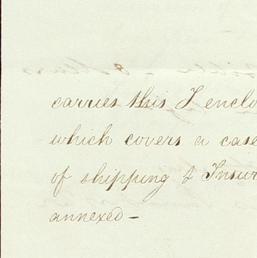 carries this I enclo
which covers a case
of shipping & Insur
annexed —